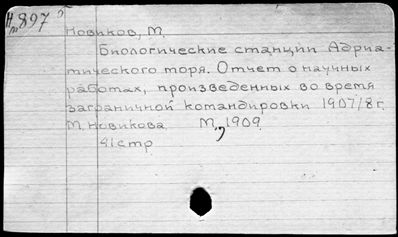 Н/т 897 б
Новиков, М.
Биологические станции Адриа-
тического моря. Отчет о научных
работах, произведенных во время
заграничной командировки 1907/8 г.
М. Новикова М., 1909
41 стр